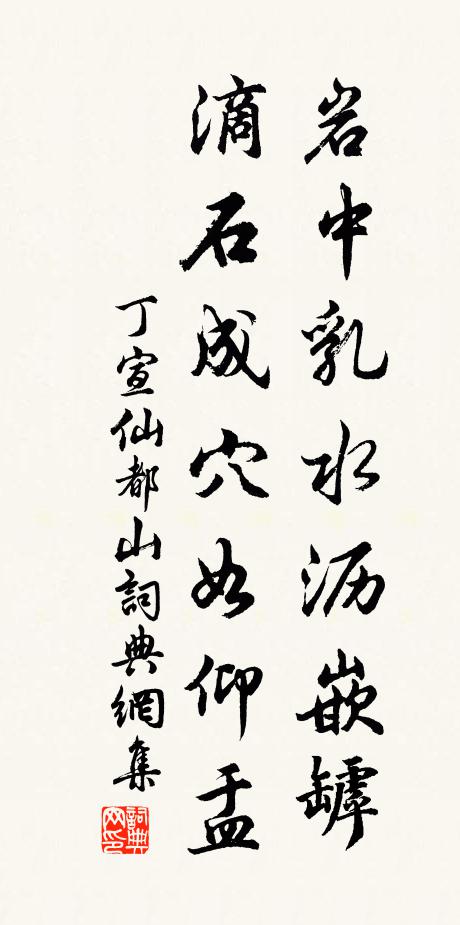 岩中乳水沥嵌罅
滴石成穴如仰盂
丁宣仙都山詞典網集
詞典网印